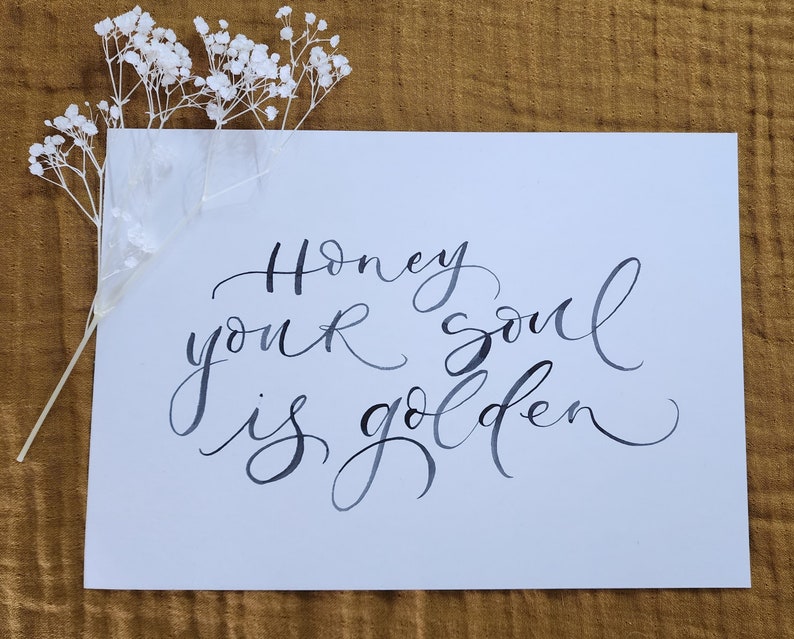 Honey
your soul
is golden